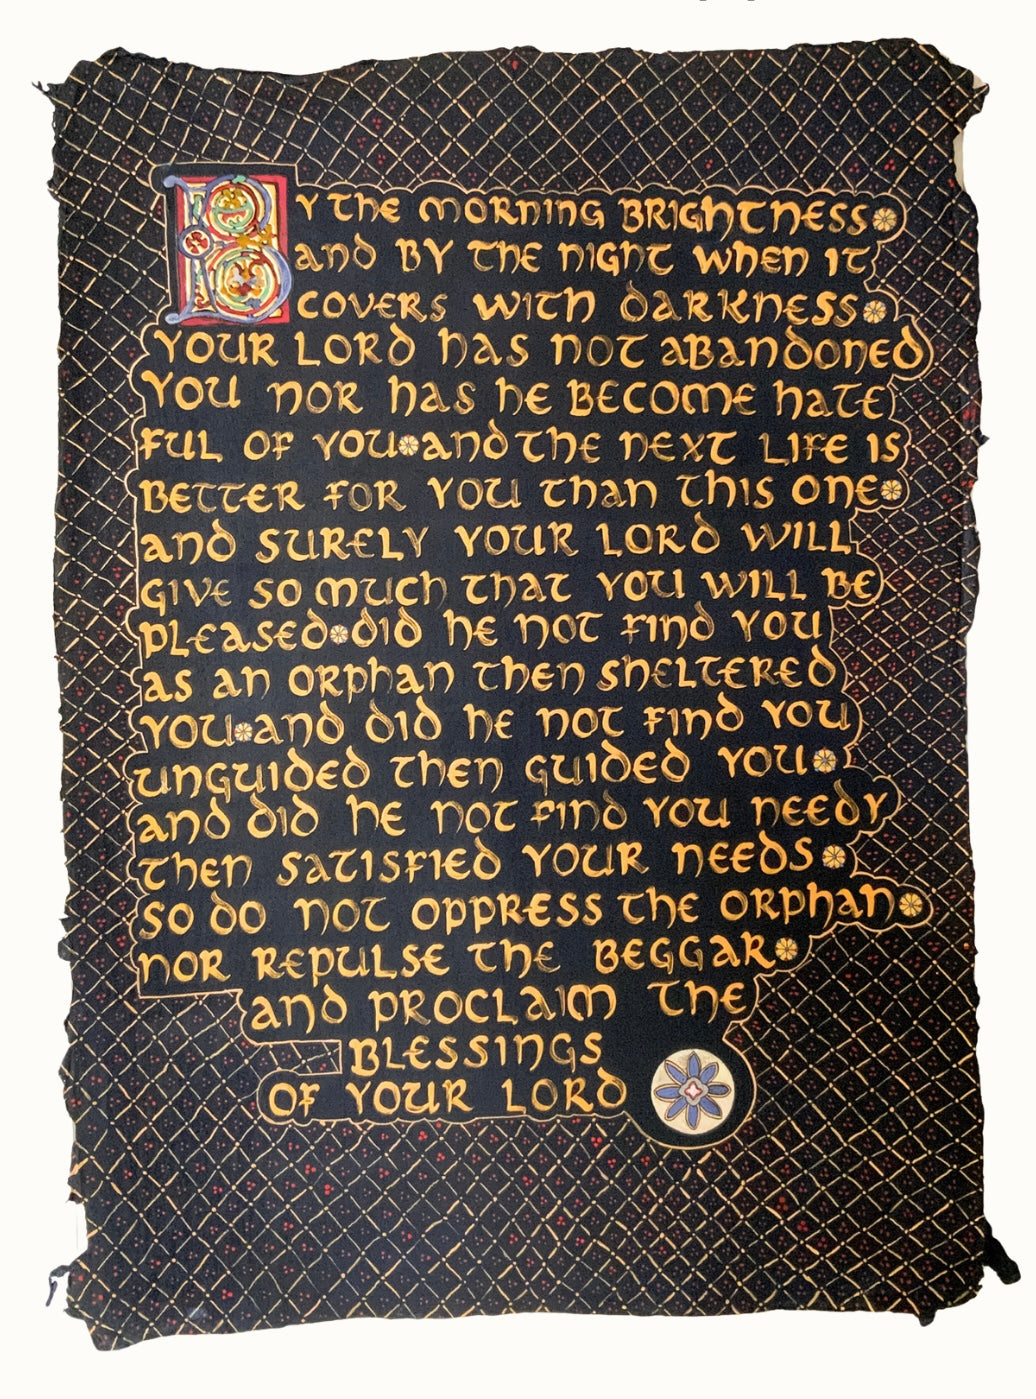 By the morning brightness
and by the night when it
covers with darkness
your Lord has not abandoned
you nor has he become hate
ful of you and the next life is
better for you than this one
and surely your Lord will
give so much that you will be
pleased did he not find you
as an orphan then sheltered
you and did he not find you
unguided then guided you
and did he not find you needy
then satisfied your needs
so do not oppress the orphan
nor repulse the beggar
and proclaim the
blessings
of your Lord